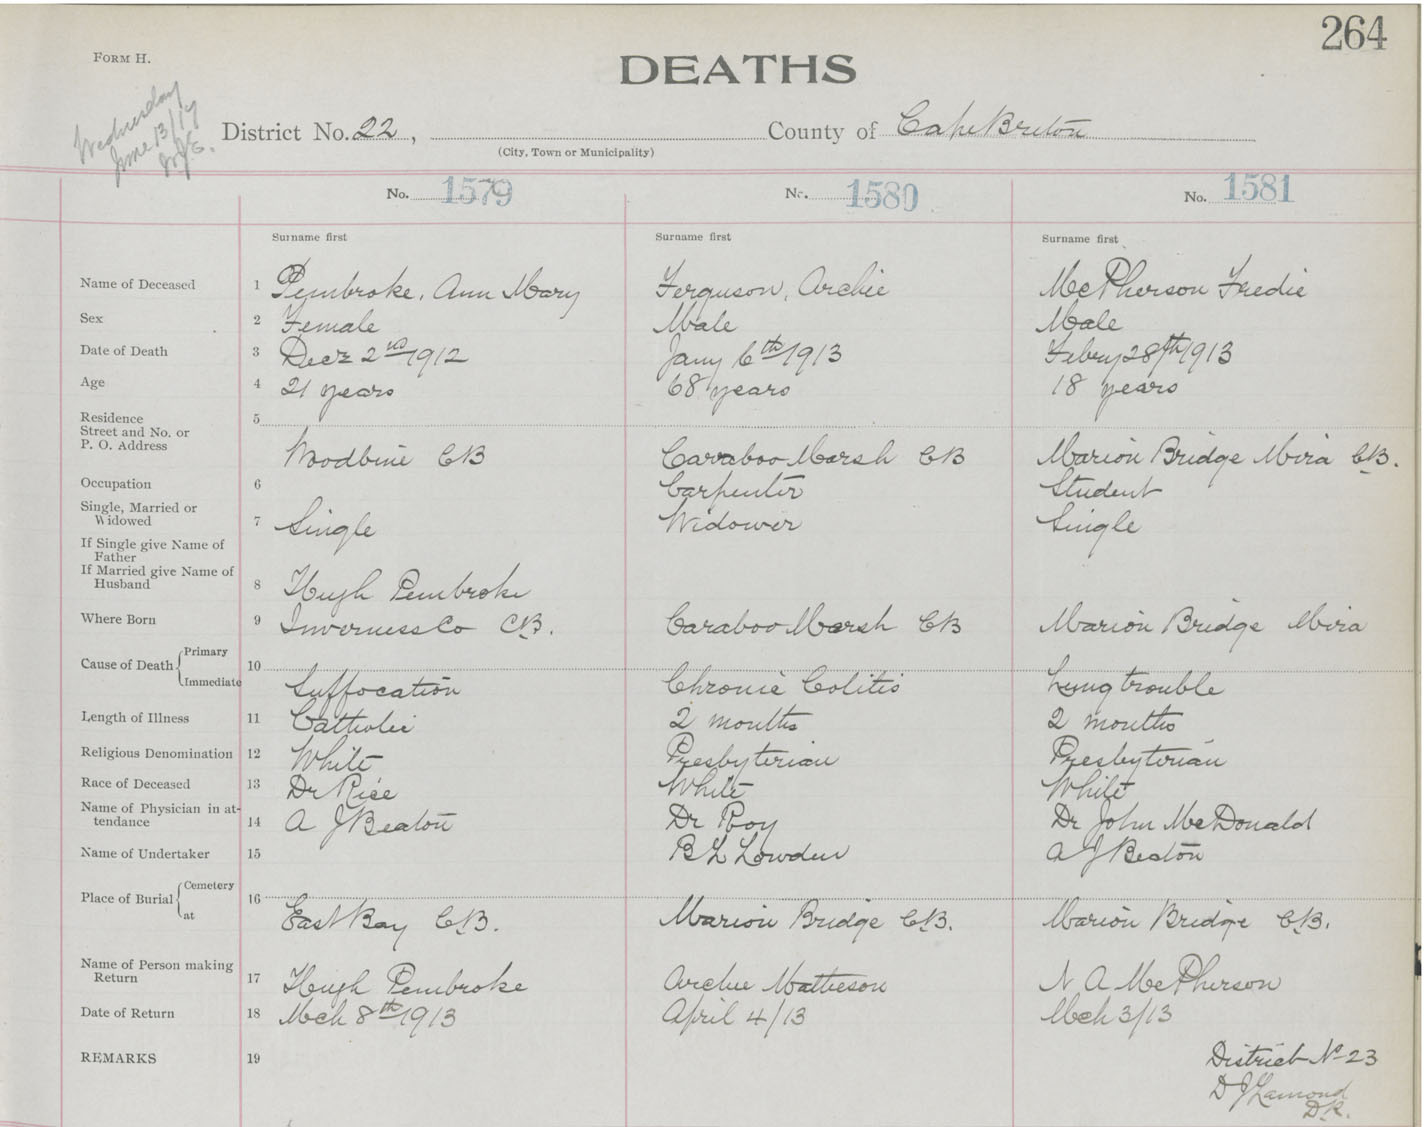 264
FORM H.
DEATHS
Wednesday
June 13/17
District No. 22, County of Cape Breton
(City, Town or Municipality)
No. 1579 No. 1580 No. 1581
Surname first Surname first Surname first
Name of Deceased 1 Pembroke, Ann Mary Ferguson, Archie McPherson Fredie
Sex 2 Female Male Male
Date of Death 3 Decr 2nd 1912 Jany 6th 1913 Febry 28th 1913
Age 4 21 years 68 years 18 years
Residence 5
Street and No. or
P. O. Address Woodbine CB Caraboo Marsh CB Marion Bridge Mira C.B.
Occupation 6 Carpenter Student
Single, Married or
Widowed 7 Single Widower Single
If Single give Name of
Father
If Married give Name of
Husband 8 Hugh Pembroke
Where Born 9 Inverness Co C.B. Caraboo Marsh CB Marion Bridge Mira
Cause of Death { Primary 10
Immediate Suffocation Chronic Colitis Lung trouble
Length of Illness 11 Catholic 2 months 2 months
Religious Denomination 12 White Presbyterian Presbyterian
Race of Deceased 13 Dr Rice White White
Name of Physician in at-
tendance 14 A J Beaton Dr Roy Dr John McDonald
Name of Undertaker 15 B L Lowden A J Beaton
Place of Burial { Cemetery 16
at East Bay C.B. Marion Bridge C.B. Marion Bridge C.B.
Name of Person making
Return 17 Hugh Pembroke Archie Matheson N A McPherson
Date of Return 18 Mch 8th 1913 April 4/13 Mch 3/13
REMARKS 19 District No 23
D J Lamond
D.R.